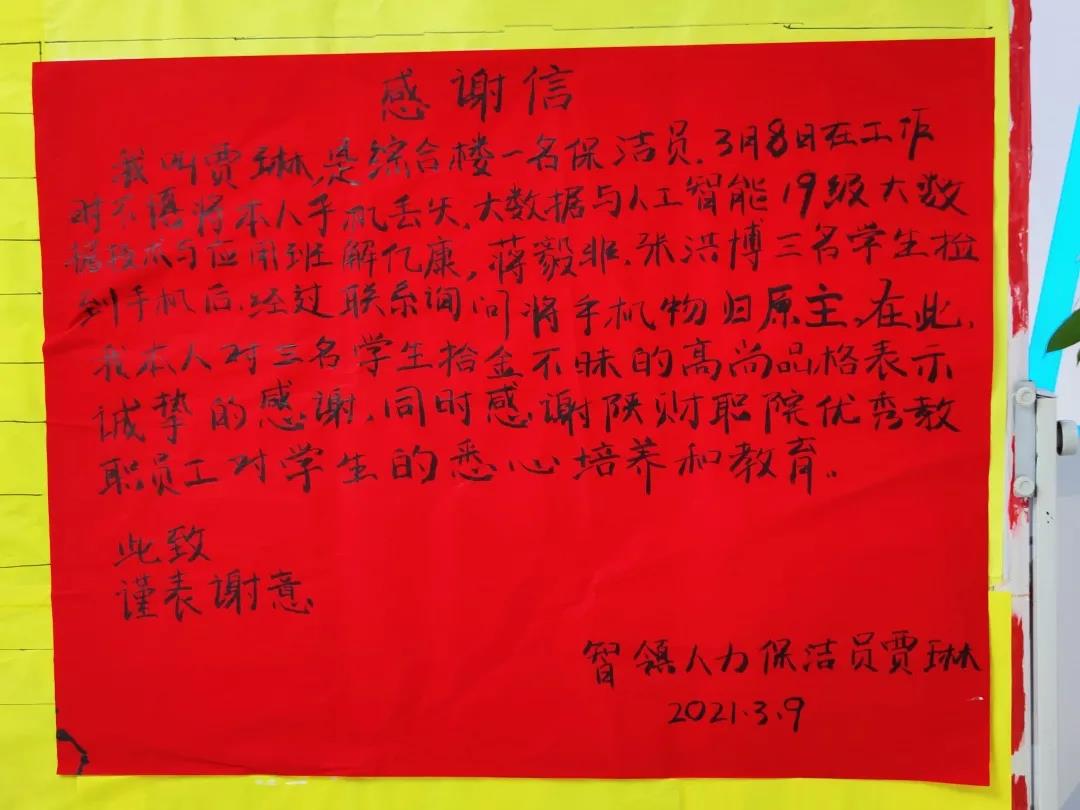 感谢信
我叫贾琳,是综合楼一名保洁员.3月8日在工作
时不慎将本人手机丢失.大数据与人工智能19级大数
据技术与应用班解亿康,蒋毅非.张洪博三名学生捡
到手机后.经过联系询问将手机物归原主.在此.
我本人对三名学生拾金不昧的高尚品格表示
诚挚的感谢.同时感谢陕财职院优秀教
职员工对学生的悉心培养和教育。
此致
谨表谢意
智领人力保洁员贾琳
2021.3.9